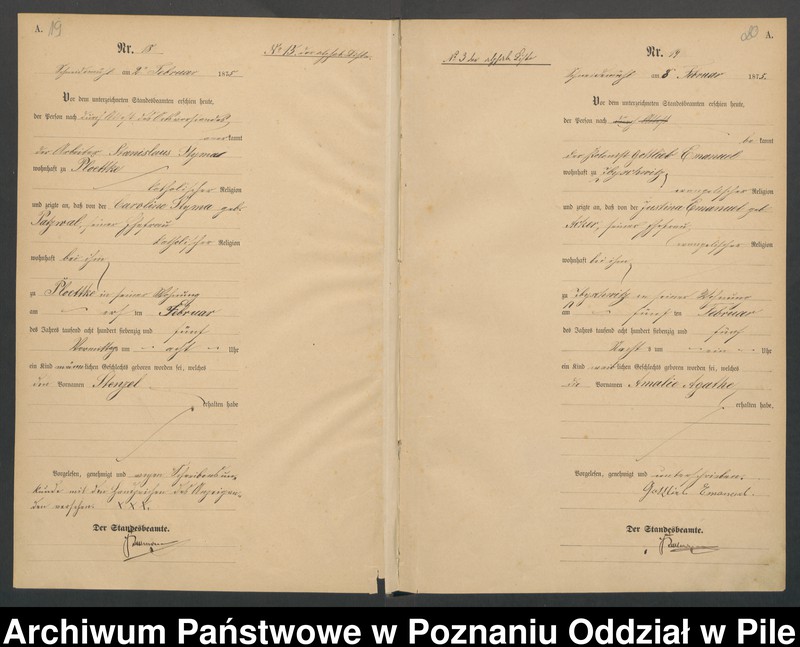 A. 19
Nr. 18
Schneidemühl am 2 Februar 1875
Vor dem unterzeichneten Standesbeamten erschien heute,
der Person nach durch
kannt
der Arbeiter Stanislaus Slyma
wohnhaft zu Ploettke
katholischer Religion
und zeigte an, daß von der Caroline Slyma geb.
seiner Ehefrau
katholischer Religion
wohnhaft bei ihm
zu Ploettke in seiner Wohnung
am den Februar
des Jahres tausend acht hundert siebenzig und fünf
Vormittags um acht Uhr
ein Kind männlichen Geschlechts geboren worden sei, welches
den Vornamen Stenzel
erhalten habe
Vorgelesen, genehmigt und wegen Schreibensun-
kunde mit den Handzeichen des Anzeigen-
den versehen. XXX.
Der Standesbeamte.
No 3 der
20 A.
Nr. 19
Schneidemühl am 8 Februar 1875.
Vor dem unterzeichneten Standesbeamten erschien heute,
der Person nach durch
bekannt
der Kolonist Gottlieb Emanuel
wohnhaft zu
evangelischer Religion
und zeigte an, daß von der Justina Emanuel geb.
seiner Ehefrau
evangelischer Religion
wohnhaft bei ihm
zu in seiner Wohnung
am fünf ten Februar
des Jahres tausend acht hundert siebenzig und fünf
Nachts um ein Uhr
ein Kind weiblichen Geschlechts geboren worden sei, welches
die Vornamen Amalie Agathe
erhalten habe.
Vorgelesen, genehmigt und unterschrieben.
Gottlieb Emanuel.
Der Standesbeamte.
Archiwum Państwowe w Poznaniu Oddział w Pile